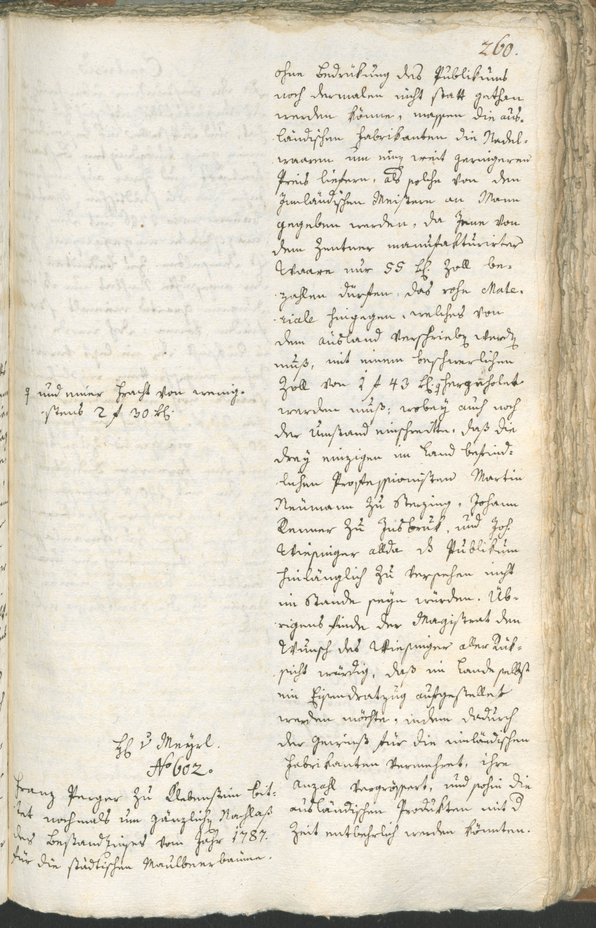 260.
ohne Bedrükung des Publikums
noch dermalen nicht statt gethan
werden könne, massen die aus-
ländischen Fabrikanten die Nadel-
waaren um einen weit geringeren
Preis liefern, als solche von den
Innländischen Meistern an Mann
gegeben werden, da Jene von
dem Zentner manufakturirter
Waare nur 55 kr. Zoll be-
zahlen dürften, das rohe Mate-
riale hingegen, welches von
dem Ausland verschrieben werden
muß, mit einem beschwerlichen
Zoll von 1 f 43 kr. hergeholet
werden muß: wobey auch noch
der Umstand einschreite, daß die
drey einzigen im Land befind-
lichen Professionisten Martin
Neumann zu Sterzing, Johann
Renner zu Insbruk, und Joh
Wiesinger allda das Publikum
hinlänglich zu versehen nicht
im Stande seyn würden. Üb-
rigens finde der Magistrat den
Wunsch des Wiesinger aller Rük-
sicht würdig, daß im Lande selbst
ein Eisendratzug aufgestellet
werden möchte, indem dadurch
der Gewinnst für die innländischen
Fabrikanten vermehret, ihre
Anzahl vergrössert, und sohin die
ausländischen Produkten mit der
Zeit entbehrlich werden könnten.
und einer Fracht von wenig-
stens 2 f 30 kr.
H. v Meyrl.
No 602.
Franz Perger zu Klebenstein bit-
tet nochmals um gänzlichen Nachlaß
des Bestandzinses vom Jahr 1787.
für die städtischen Maulbeerbäume.